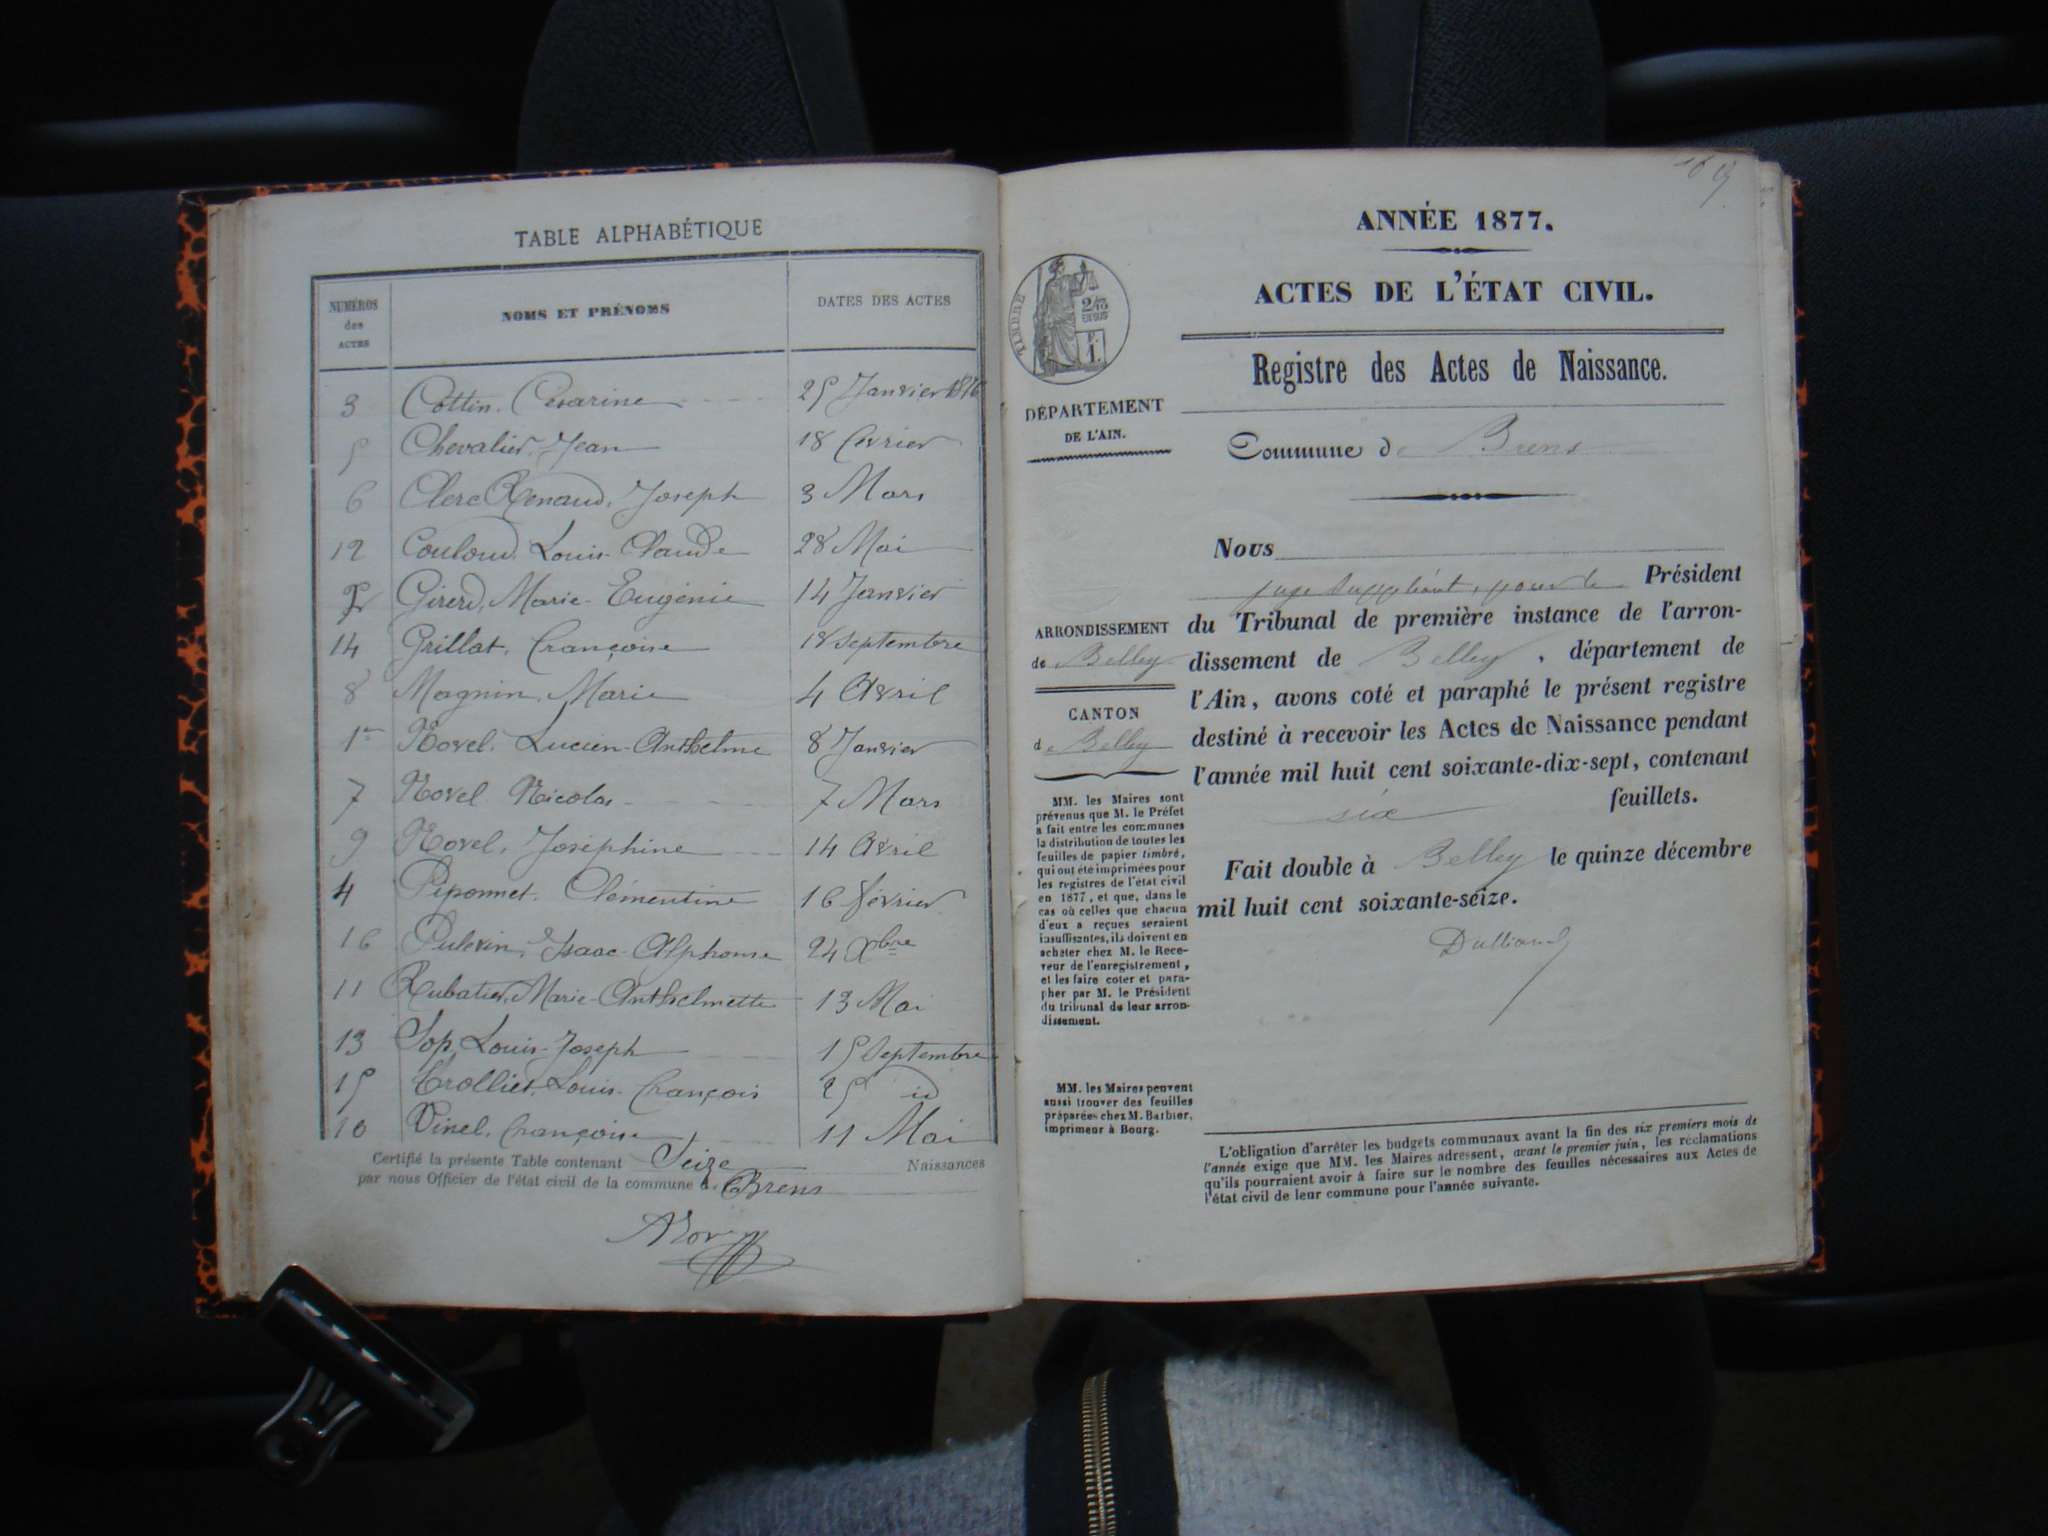 TABLE ALPHABÉTIQUE
NUMÉROS des ACTES NOMS ET PRÉNOMS DATES DES ACTES
3 Cottin, Césarine 25 Janvier 1876
5 Chevalier, Jean 18 Février
6 Clerc Renaud, Joseph 3 Mars
12 Couloud, Louis-Claude 28 Mai
2 Girerd, Marie-Eugénie 14 Janvier
14 Grillat, Françoise 18 septembre
8 Magnin, Marie 4 Avril
1er Novel, Lucien-Anthelme 8 Janvier
7 Novel Nicolas 7 Mars
9 Novel, Joséphine 14 Avril
4 Peponnet, Clémentine 16 février
16 Pulvin, Isaac-Alphonse 24 Xbre
11 Rubatier, Marie-Anthelmette 13 Mai
13 Sop, Louis-Joseph 15 septembre
15 Trollier, Louis-François 25 id
10 Vinel, Françoise 11 Mai
Certifié la présente Table contenant Seize Naissances
par nous Officier de l'état civil de la commune de Brens
ANNÉE 1877.
ACTES DE L'ÉTAT CIVIL.
Registre des Actes de Naissance.
TIMBRE
2/10
EN SUS
F.
1.
DÉPARTEMENT
DE L'AIN.
Commune de Brens
Nous
juge suppléant, pour le Président
du Tribunal de première instance de l'arron-
dissement de Belley, département de
l'Ain, avons coté et paraphé le présent registre
destiné à recevoir les Actes de Naissance pendant
l'année mil huit cent soixante-dix-sept, contenant
six feuillets.
Fait double à Belley le quinze décembre
mil huit cent soixante-seize.
ARRONDISSEMENT
de Belley
CANTON
de Belley
MM. les Maires sont
prévenus que M. le Préfet
a fait entre les communes
la distribution de toutes les
feuilles de papier timbré,
qui ont été imprimées pour
les registres de l'état civil
en 1877, et que, dans le
cas où celles que chacun
d'eux a reçues seraient
insuffisantes, ils doivent en
acheter chez M. le Rece-
veur de l'enregistrement,
et les faire coter et para-
pher par M. le Président
du tribunal de leur arron-
dissement.
MM. les Maires peuvent
aussi trouver des feuilles
préparées chez M. Barbier,
imprimeur à Bourg.
L'obligation d'arrêter les budgets communaux avant la fin des six premiers mois de
l'année exige que MM. les Maires adressent, avant le premier juin, les réclamations
qu'ils pourraient avoir à faire sur le nombre des feuilles nécessaires aux Actes de
l'état civil de leur commune pour l'année suivante.